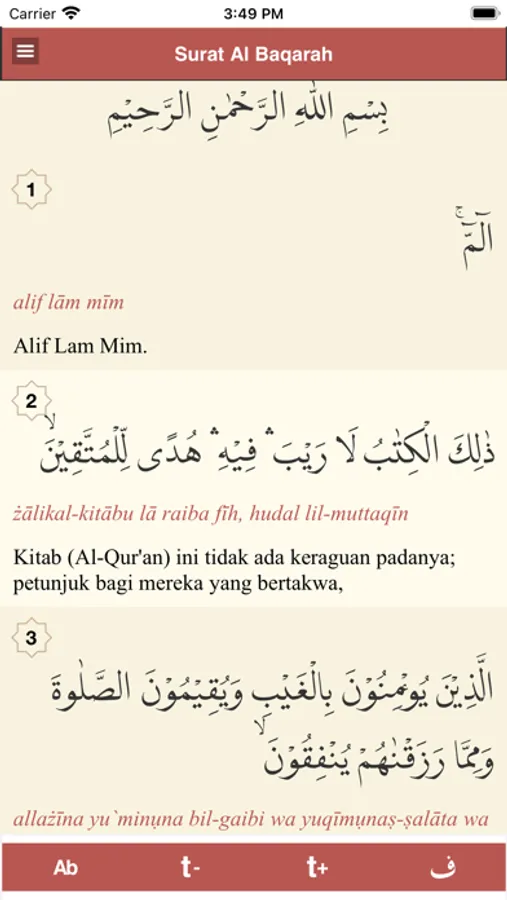 Carrier 3:49 PM
Surat Al Baqarah
بِسْمِ اللّٰهِ الرَّحْمٰنِ الرَّحِيْمِ
1
الۤمّۤ ۚ
alif lām mīm
Alif Lam Mim.
2
ذٰلِكَ الْكِتٰبُ لَا رَيْبَ ۛ فِيْهِ ۛ هُدًى لِّلْمُتَّقِيْنَۙ
żālikal-kitābu lā raiba fīh, hudal lil-muttaqīn
Kitab (Al-Qur'an) ini tidak ada keraguan padanya;
petunjuk bagi mereka yang bertakwa,
3
الَّذِيْنَ يُؤْمِنُوْنَ بِالْغَيْبِ وَيُقِيْمُوْنَ الصَّلٰوةَ
وَمِمَّا رَزَقْنٰهُمْ يُنْفِقُوْنَ ۙ
allażīna yu`minụna bil-gaibi wa yuqīmụnaṣ-ṣalāta wa
Ab t- t+ ف